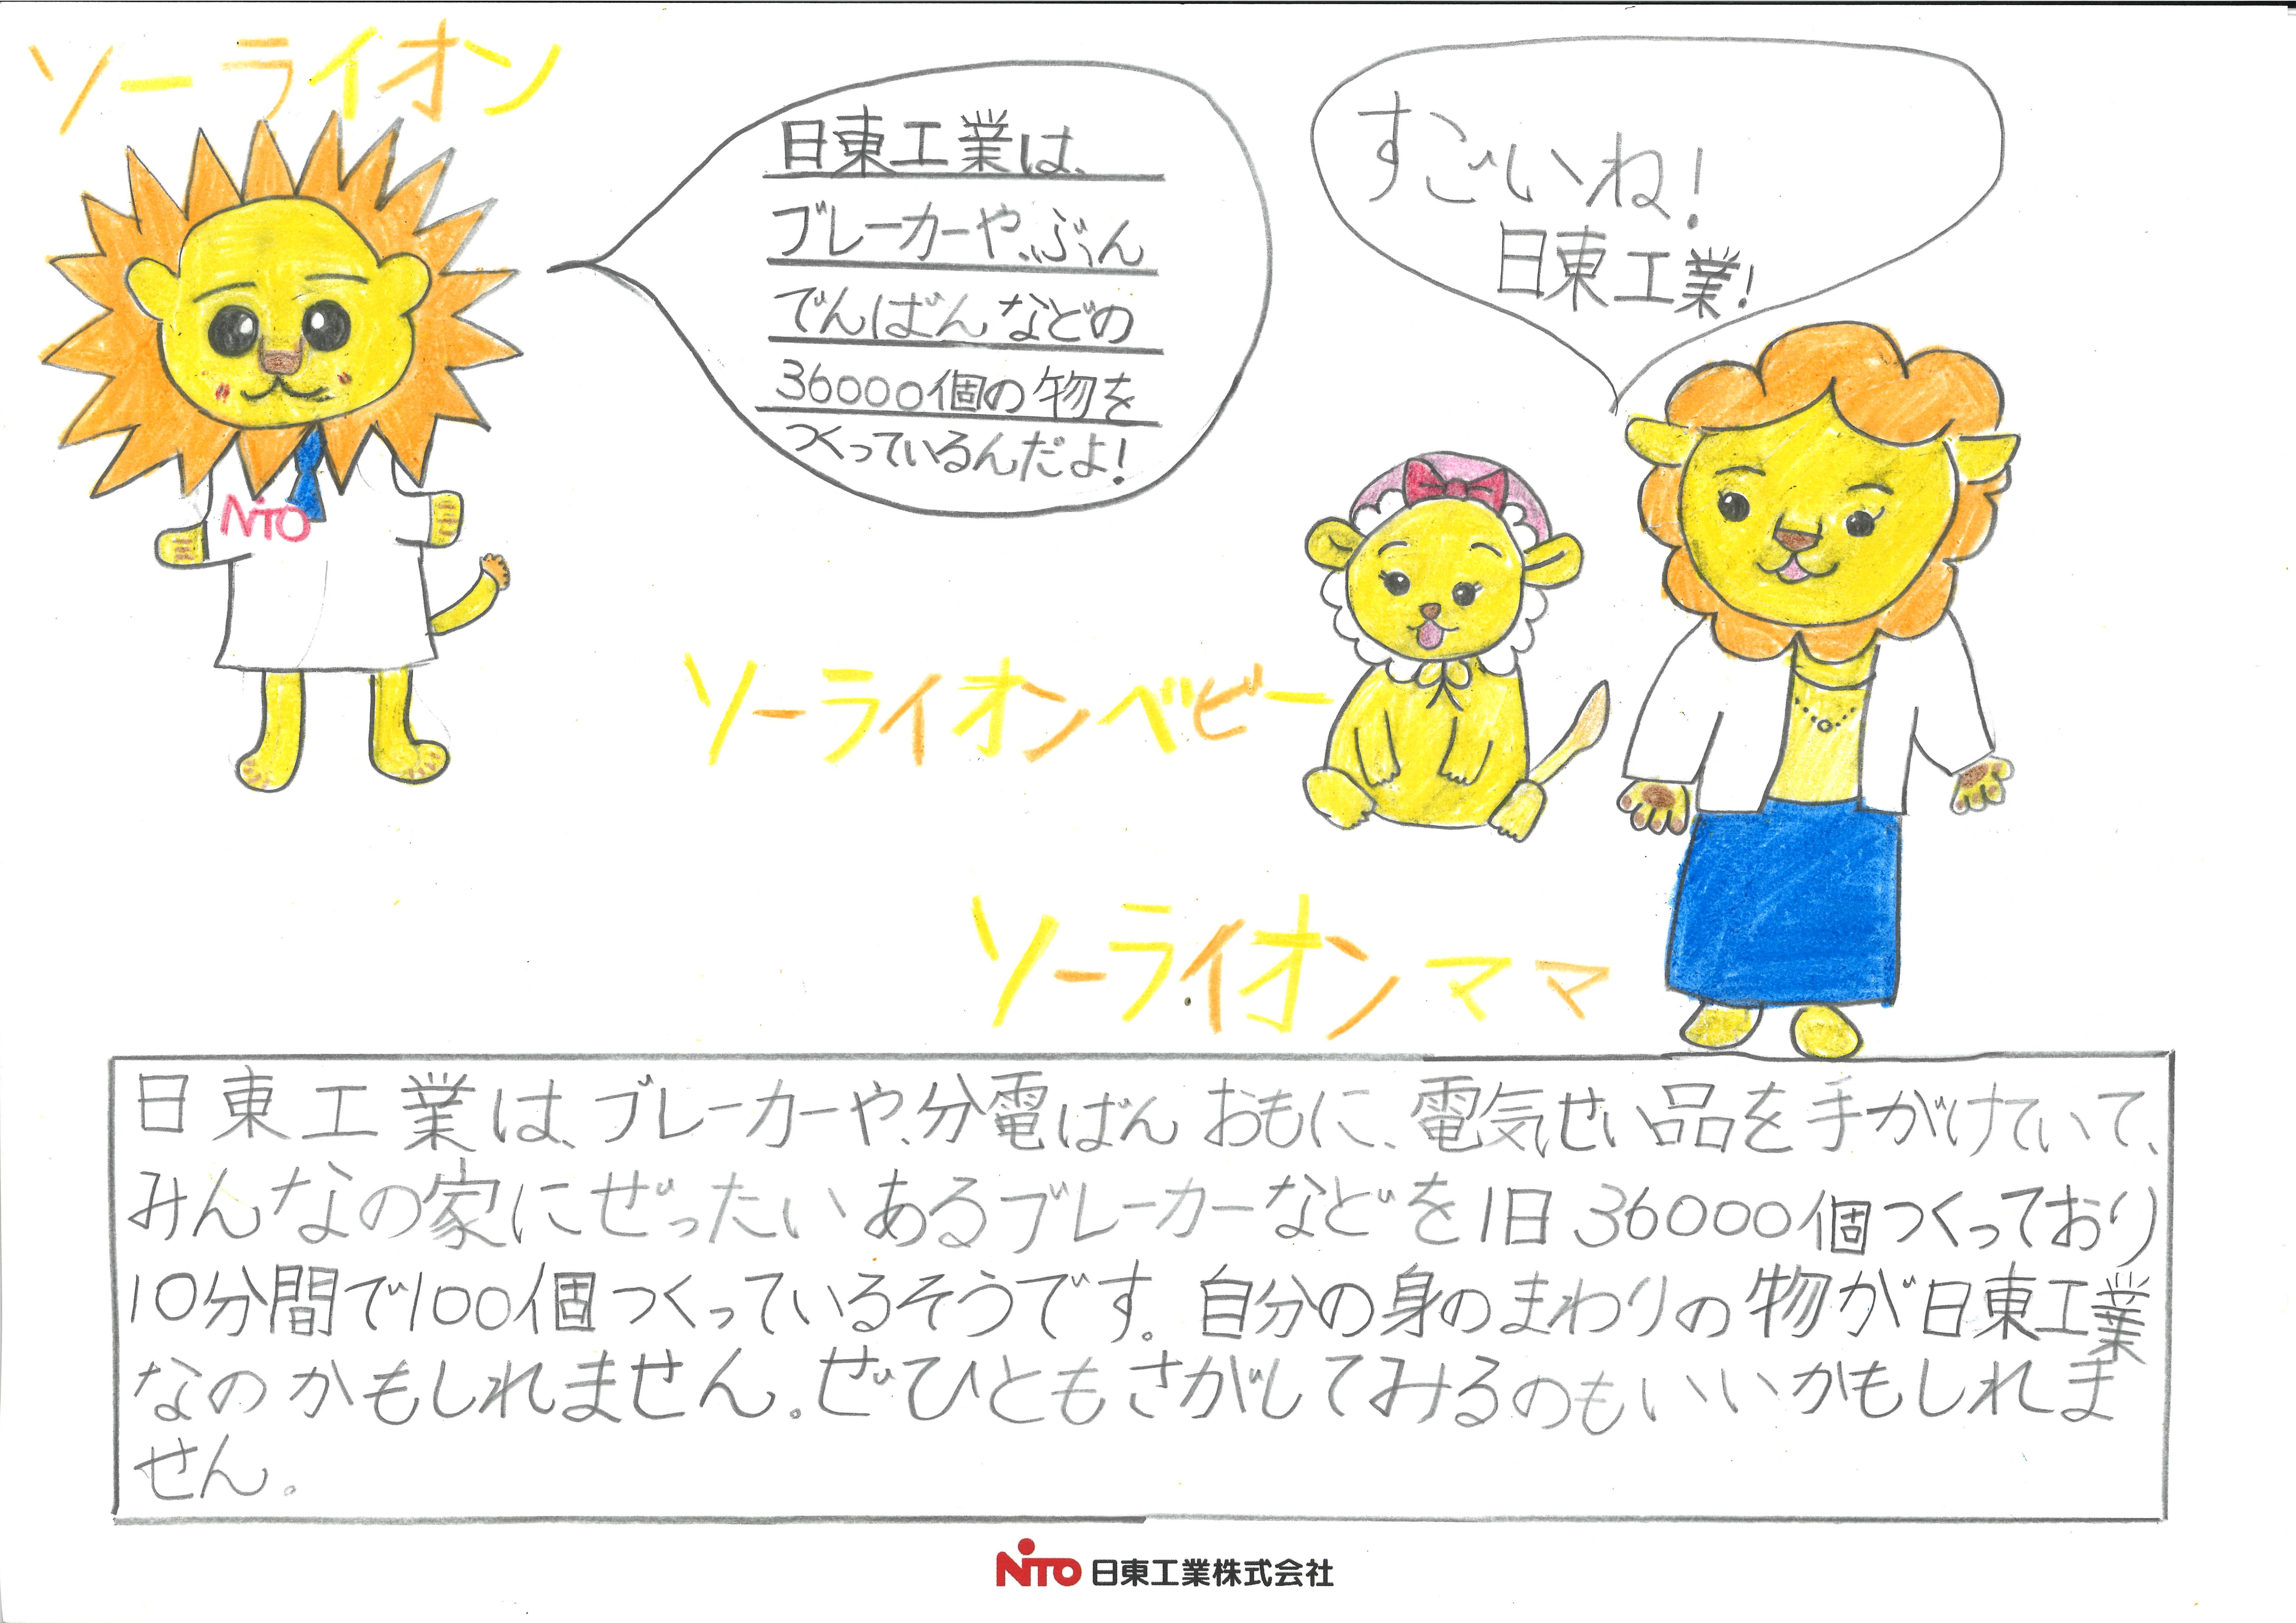 ソーライオン
日東工業は、
ブレーカーや、ぶん
でんばんなどの
36000個の物を
つくっているんだよ!
すごいね!
日東工業!
NiTO
ソーライオンベビー
ソーライオンママ
日東工業は、ブレーカーや、分電ばんおもに、電気せい品を手がけていて、
みんなの家にぜったいあるブレーカーなどを1日36000個つくっており
10分間で100個つくっているそうです。自分の身のまわりの物が日東工業
なのかもしれません。ぜひともさがしてみるのもいいかもしれま
せん。
NiTO 日東工業株式会社